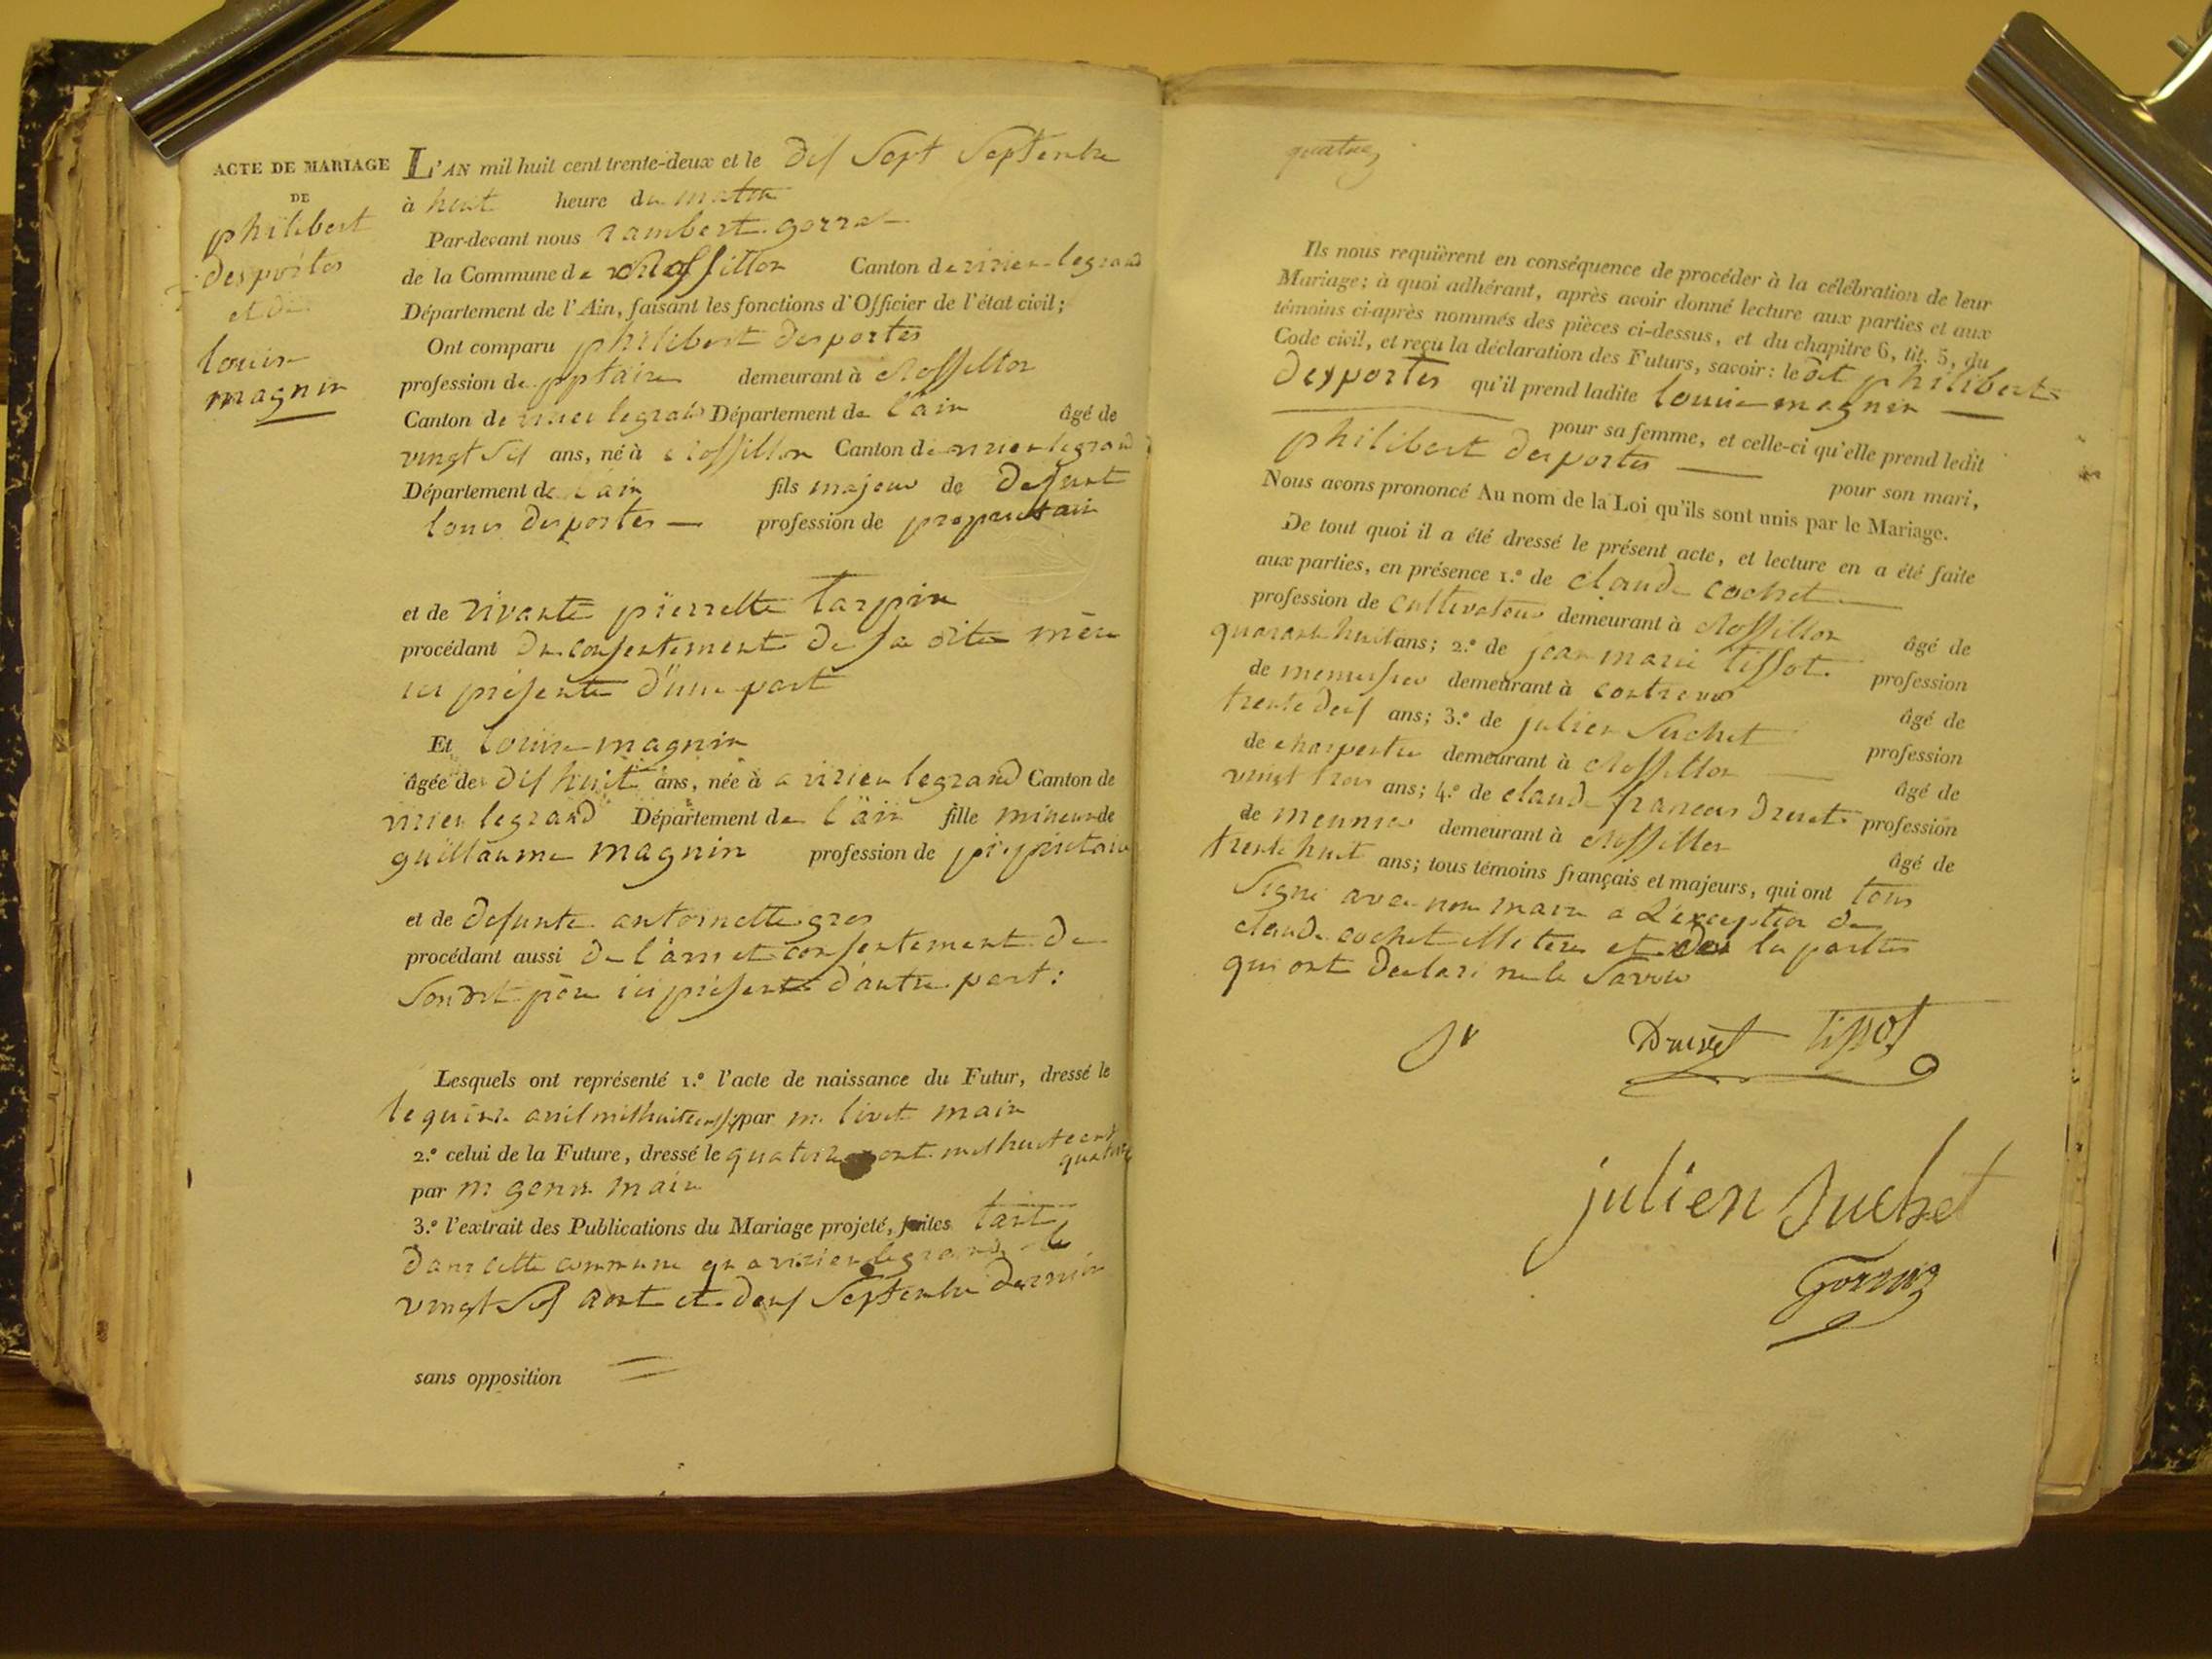 ACTE DE MARIAGE
DE
philibert
desportes
et de
louise
magnin
L'AN mil huit cent trente-deux et le dix Sept Septembre
à huit heure du matin
Par-devant nous rambert gorraz
de la Commune de Rossillon Canton de virieu legrand
Département de l'Ain, faisant les fonctions d'Officier de l'état civil;
Ont comparu philibert desportes
profession de pptaire demeurant à Rossillon
Canton de virieu legrand Département de l'ain âgé de
vingt Six ans, né à Rossillon Canton de virieu legrand
Département de l'ain fils majeur de defunt
louis desportes — profession de propriétaire
et de vivante pierrette tarpin
procédant du consentement de sa dite mère
ici présente d'une part
Et louise magnin
âgée de dix huit ans, née à a virieu legrand Canton de
virieu legrand Département de l'ain fille mineure de
guillaume magnin profession de propriétaire
et de defunte antoinette gros
procédant aussi de l'avis et consentement de
Son dit père ici présent d'autre part:
Lesquels ont représenté 1.º l'acte de naissance du Futur, dressé le
le quinze avril mil huit cent six par m. livet maire
2.º celui de la Future, dressé le quatorze aout mil huit cent
quatorze
par m maire
3.º l'extrait des Publications du Mariage projeté, faites tant
dans cette commune qu a virieu legrand le
vingt Six aout et deux Septembre dernier
sans opposition =
Ils nous requièrent en conséquence de procéder à la célébration de leur
Mariage; à quoi adhérant, après avoir donné lecture aux parties et aux
témoins ci-après nommés des pièces ci-dessus, et du chapitre 6, tit. 5, du
Code civil, et reçu la déclaration des Futurs, savoir: le dit philibert
desportes qu'il prend ladite louise magnin —
pour sa femme, et celle-ci qu'elle prend ledit
philibert desportes — pour son mari,
Nous avons prononcé Au nom de la Loi qu'ils sont unis par le Mariage.
De tout quoi il a été dressé le présent acte, et lecture en a été faite
aux parties, en présence 1.º de claude cochet —
profession de cultivateur demeurant à Rossillon âgé de
quarante huit ans; 2.º de jean marie tissot profession
de menuisier demeurant à contrevos âgé de
trente deux ans; 3.º de julien Suchet profession
de charpentier demeurant à Rossillon — âgé de
vingt trois ans; 4.º de claude francois druet profession
de meunier demeurant à Rossillon âgé de
trente huit ans; tous témoins français et majeurs, qui ont tous
Signé avec nous maire a L'exception de
claude cochet et des la parties
qui ont declaré ne le Savoir
Druet tissot
julien Suchet
Gorraz